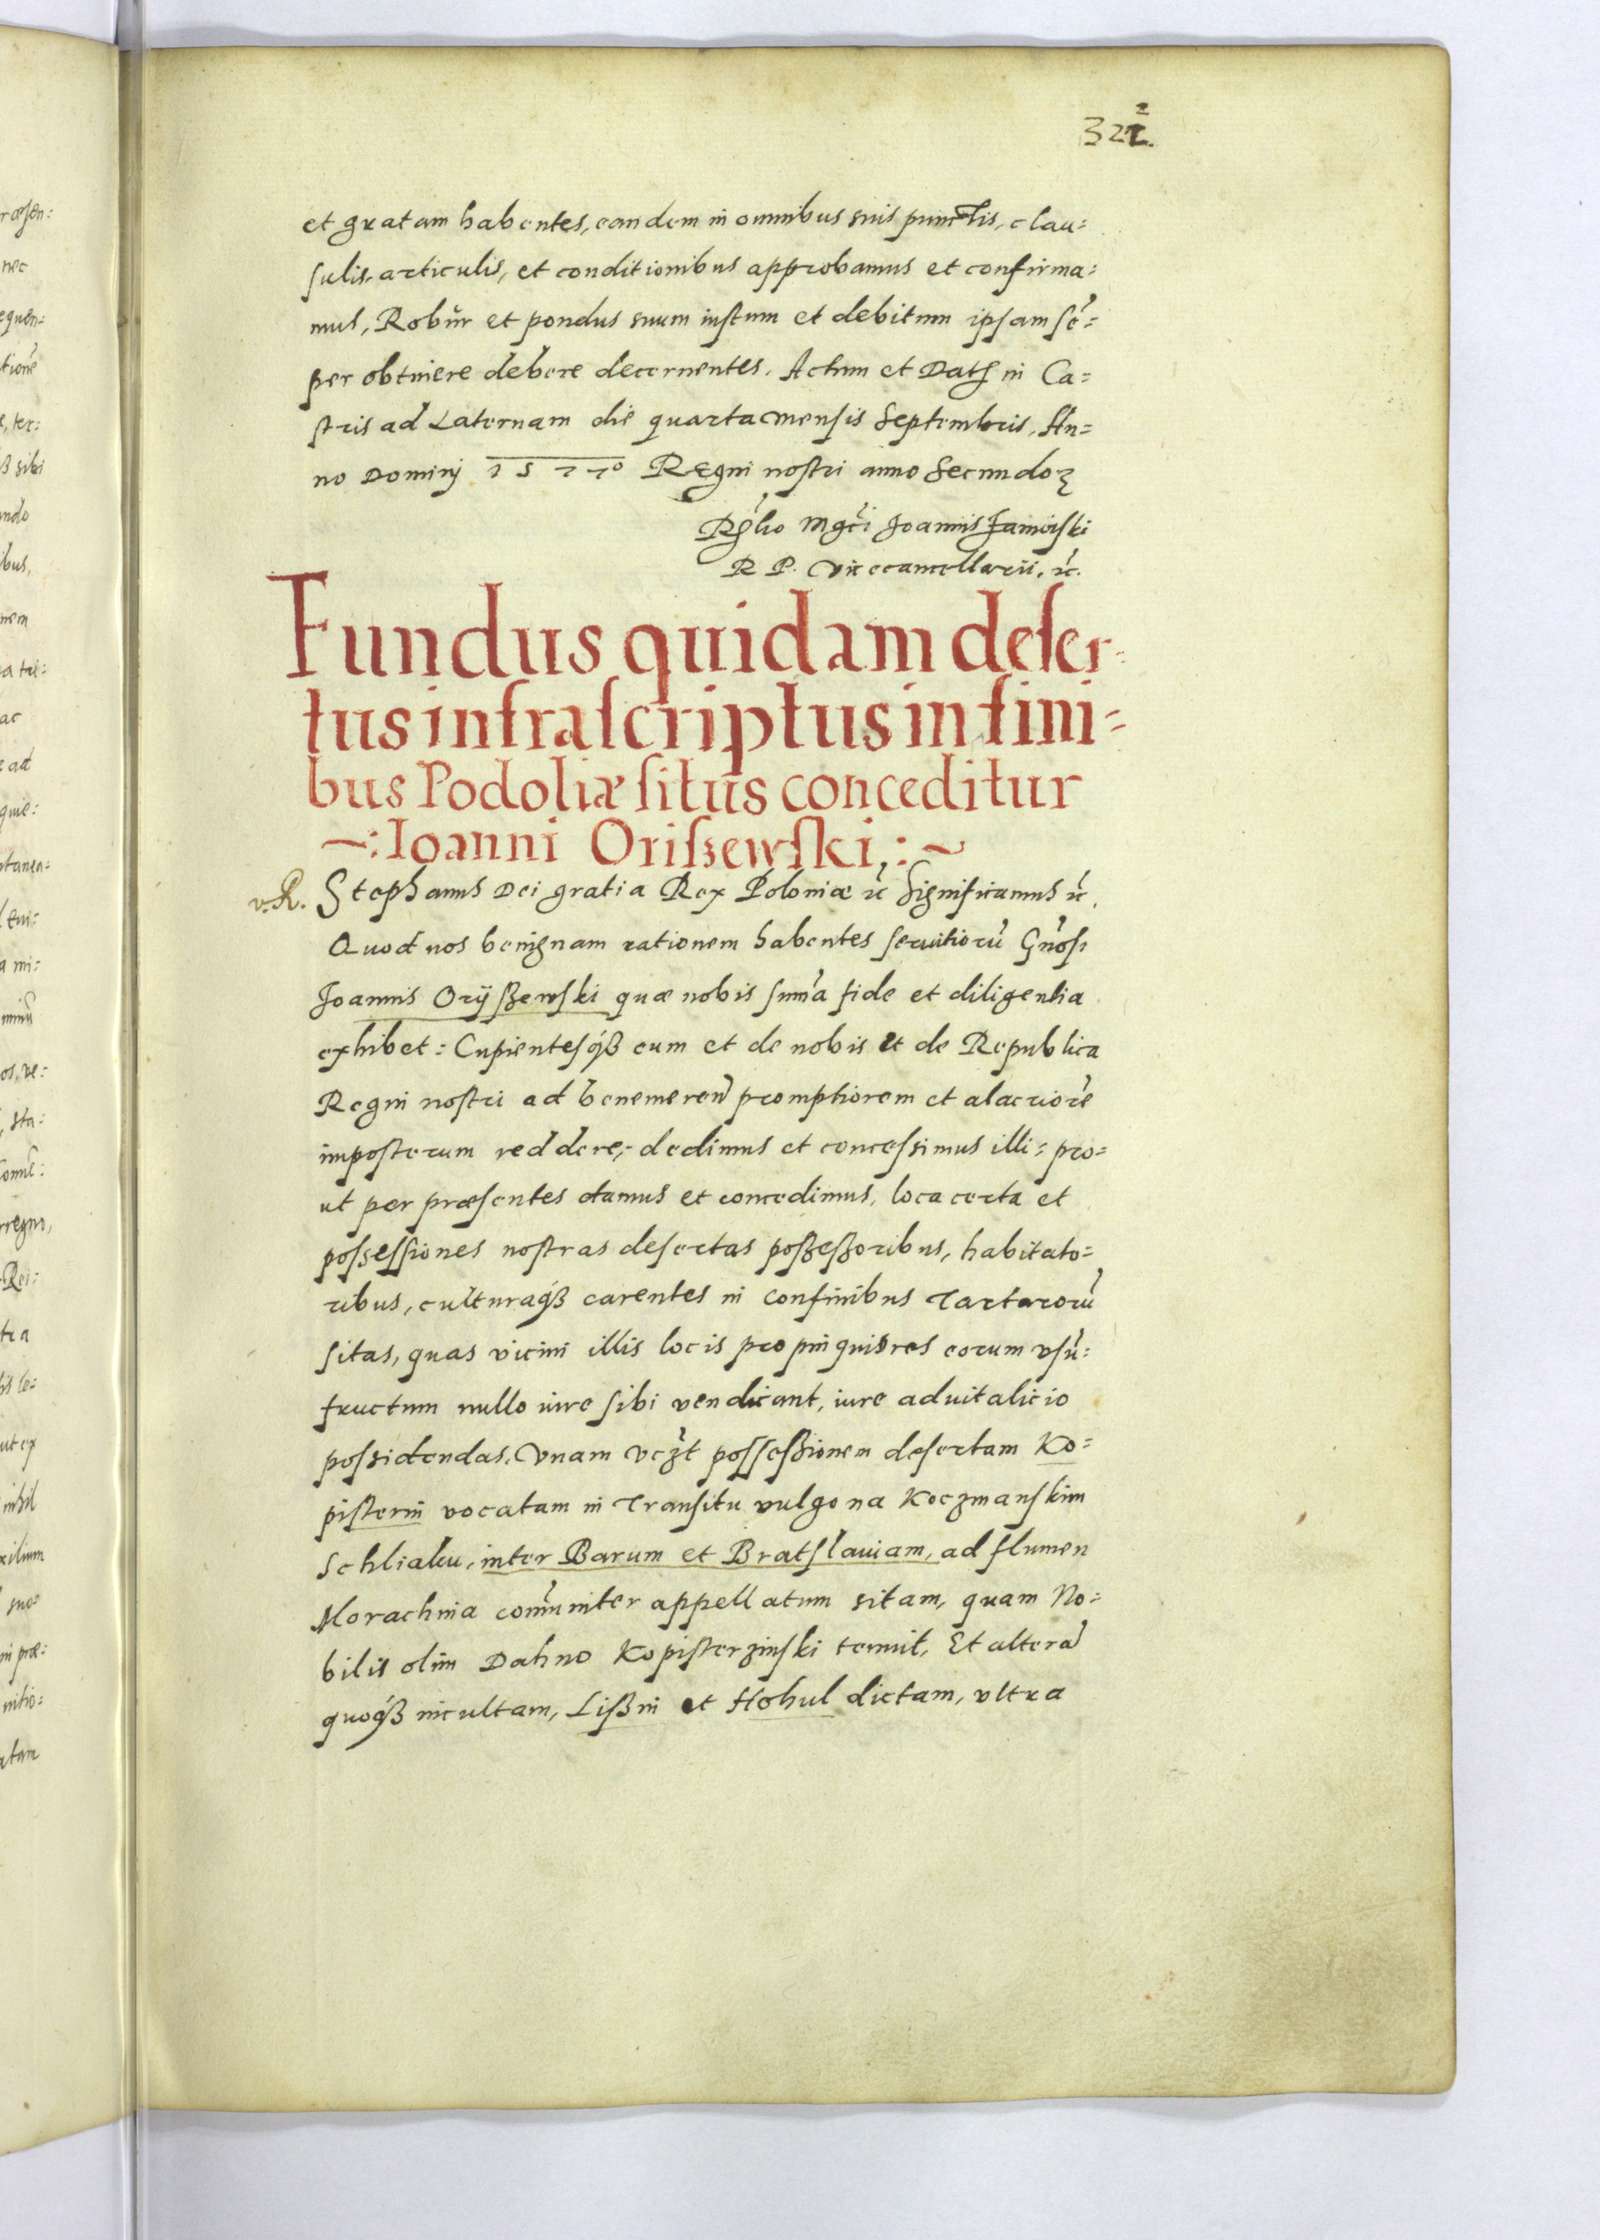 322.
et gratam habentes, eandem in omnibus suis punctis, clau=
sulis, articulis, et conditionibus approbamus et confirma=
mus, Robur et pondus suum iustum et debitum ipsam sē=
per obtinere debere decernentes. Actum et Datū in Ca=
stris ad Laternam die quarta mensis Septembris, An=
no Dominj 1577º Regni nostri anno Secundoʒ
Rłho Mgci Joannis Zamoiski
R P. Vicecancellarii, ꝛc.
Fundus quidam deser=
tus infrascriptus in fini=
bus Podoliæ situs conceditur
~:Ioanni Orissewski:~
v. R. Stephanus Dei gratia Rex Poloniæ ꝛc Significamus ꝛc.
Quod nos benignam rationem habentes seruitiorū Gnosi
Joannis Oryßewski quæ nobis sum̄a fide et diligentia
exhibet: Cupientesqꝫ eum et de nobis et de Republica
Regni nostri ad benemeren̄ promptiorem et alacriorē
imposterum reddere, dedimus et concessimus illi= pro=
ut per præsentes damus et concedimus, loca certa et
possessiones nostras desertas poßeßoribus, habitato=
ribus, culturaqꝫ carentes in confinibus Tartarorū
sitas, quas vicini illis locis propinquiores eorum vsū=
fructum nullo iure sibi vendicant, iure aduitalicio
possidendas. Vnam vczt posseßionem desertam Ko=
pisterin vocatam in Transitu vulgo na Koczmanskim
Schliaku, inter Barum et Bratslauiam, ad flumen
Morachwa com̄uniter appellatum sitam, quam No=
bilis olim Dahno Kopisterzinski tenuit, Et alterā
quoqꝫ incultam, Lißin et Hohul dictam, vltra